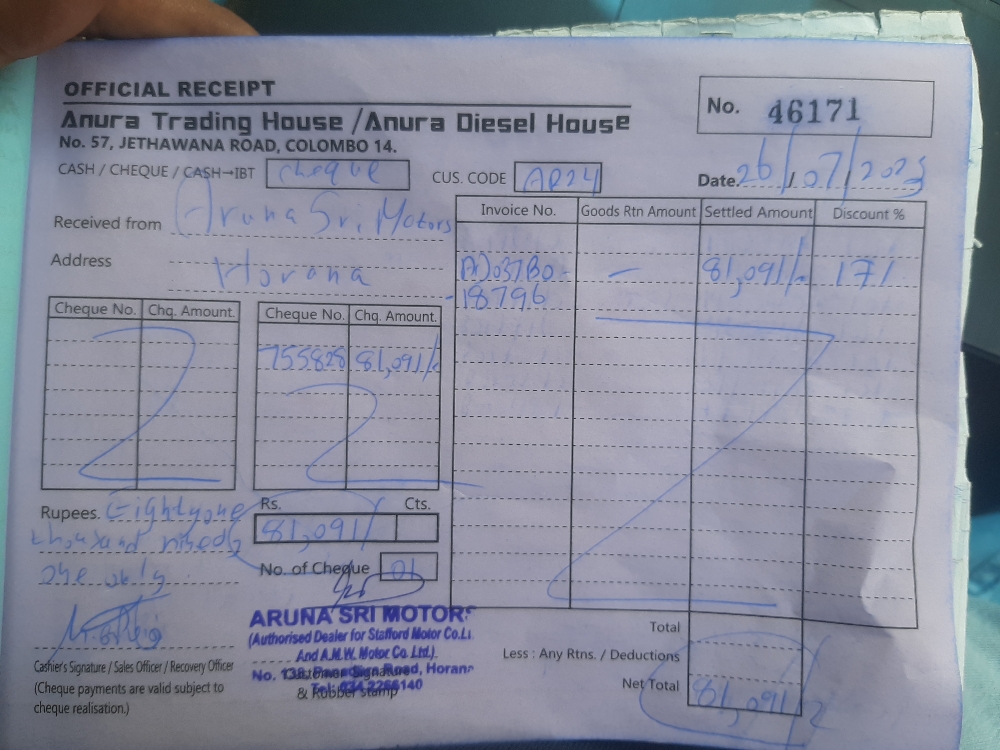 OFFICIAL RECEIPT
Anura Trading House /Anura Diesel House
No. 57, JETHAWANA ROAD, COLOMBO 14.
No. 46171
CASH / CHEQUE / CASH→IBT cheque
CUS. CODE AR24
Date. 26/07/2023
Received from Aruna Sri Motors
Address Horana
Invoice No. Goods Rtn Amount Settled Amount Discount %
81,091/- 17/
18796
Cheque No. Chq. Amount. Cheque No. Chq. Amount.
755828 81,091/-
Rupees. Eightyone
thousand
one only
Rs. Cts.
81,091/
No. of Cheque 01
ARUNA SRI MOTORS
(Authorised Dealer for Stafford Motor Co.
And A.M.W. Motor Co. Ltd.)
Road, Horana
Tel: 034 2266140
& Rubber stamp
Cashier's Signature / Sales Officer / Recovery Officer
(Cheque payments are valid subject to
cheque realisation.)
Total
Less : Any Rtns. / Deductions
Net Total 81,091/